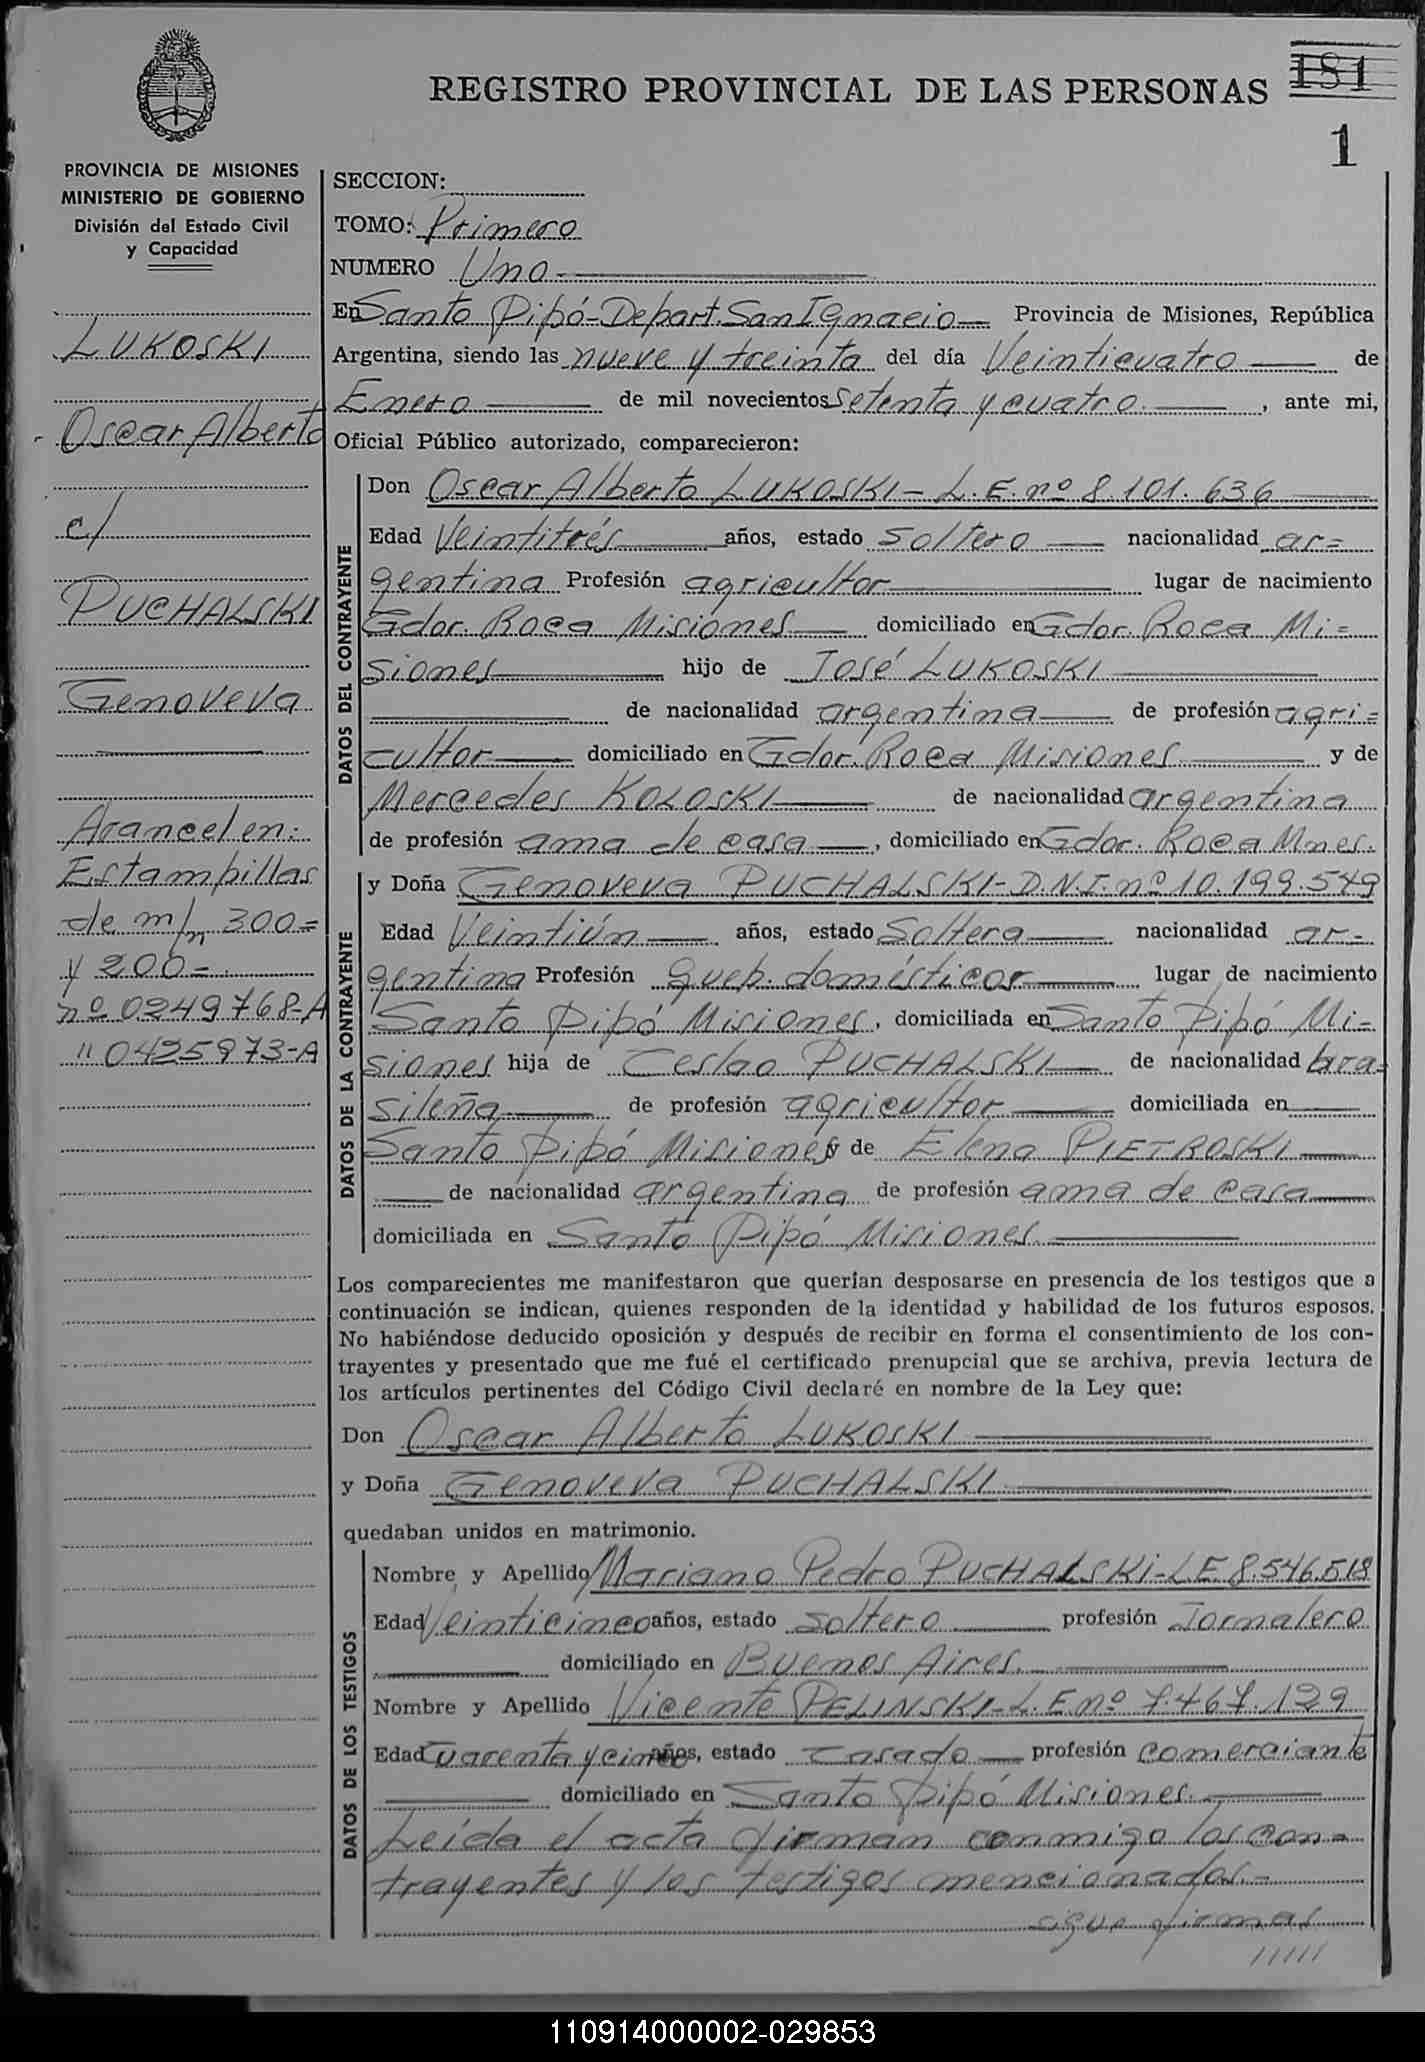 REGISTRO PROVINCIAL DE LAS PERSONAS
181
1
PROVINCIA DE MISIONES
MINISTERIO DE GOBIERNO
División del Estado Civil
y Capacidad
LUKOSKI
Oscar Alberto
c/
PUCHALSKI
Genoveva
Arancel en:
Estampillas
de m/n 300=
y 200-
nº 0249768-A
" 0425973-A
SECCION:
TOMO: Primero
NUMERO Uno
En Santo Pipó-Depart. San Ignacio Provincia de Misiones, República
Argentina, siendo las nueve y treinta del día Veinticuatro de
Enero de mil novecientos setenta y cuatro, ante mi,
Oficial Público autorizado, comparecieron:
DATOS DEL CONTRAYENTE
Don Oscar Alberto LUKOSKI - L.E. nº 8.101.636
Edad Veintitrés años, estado soltero nacionalidad ar=
gentina Profesión agricultor lugar de nacimiento
Gdor. Roca Misiones domiciliado en Gdor. Roca Mi=
siones hijo de José LUKOSKI
de nacionalidad argentina de profesión agri=
cultor domiciliado en Gdor. Roca Misiones y de
Mercedes KOLOSKI de nacionalidad argentina
de profesión ama de casa, domiciliado en Gdor. Roca Mnes.
DATOS DE LA CONTRAYENTE
y Doña Genoveva PUCHALSKI - D.N.I. nº 10.199.549
Edad Veintiún años, estado Soltera nacionalidad ar-
gentina Profesión Queh. domésticos lugar de nacimiento
Santo Pipó Misiones, domiciliada en Santo Pipó Mi-
siones hija de Ceslao PUCHALSKI de nacionalidad bra=
sileña de profesión agricultor domiciliada en
Santo Pipó Misiones y de Elena PIETROSKI
de nacionalidad argentina de profesión ama de casa
domiciliada en Santo Pipó Misiones.
Los comparecientes me manifestaron que querían desposarse en presencia de los testigos que a
continuación se indican, quienes responden de la identidad y habilidad de los futuros esposos.
No habiéndose deducido oposición y después de recibir en forma el consentimiento de los con-
trayentes y presentado que me fué el certificado prenupcial que se archiva, previa lectura de
los artículos pertinentes del Código Civil declaré en nombre de la Ley que:
Don Oscar Alberto LUKOSKI
y Doña Genoveva PUCHALSKI
quedaban unidos en matrimonio.
DATOS DE LOS TESTIGOS
Nombre y Apellido Mariano Pedro PUCHALSKI-LE 8.546.518
Edad Veinticinco años, estado soltero profesión Jornalero
domiciliado en Buenos Aires.
Nombre y Apellido Vicente PELINSKI - L.E nº 7.467.129
Edad Cuarenta y cinco años, estado casado profesión comerciante
domiciliado en Santo Pipó Misiones.
Leída el acta firman conmigo los con=
trayentes y los testigos mencionados.-
sigue firmas
/////
110914000002-029853